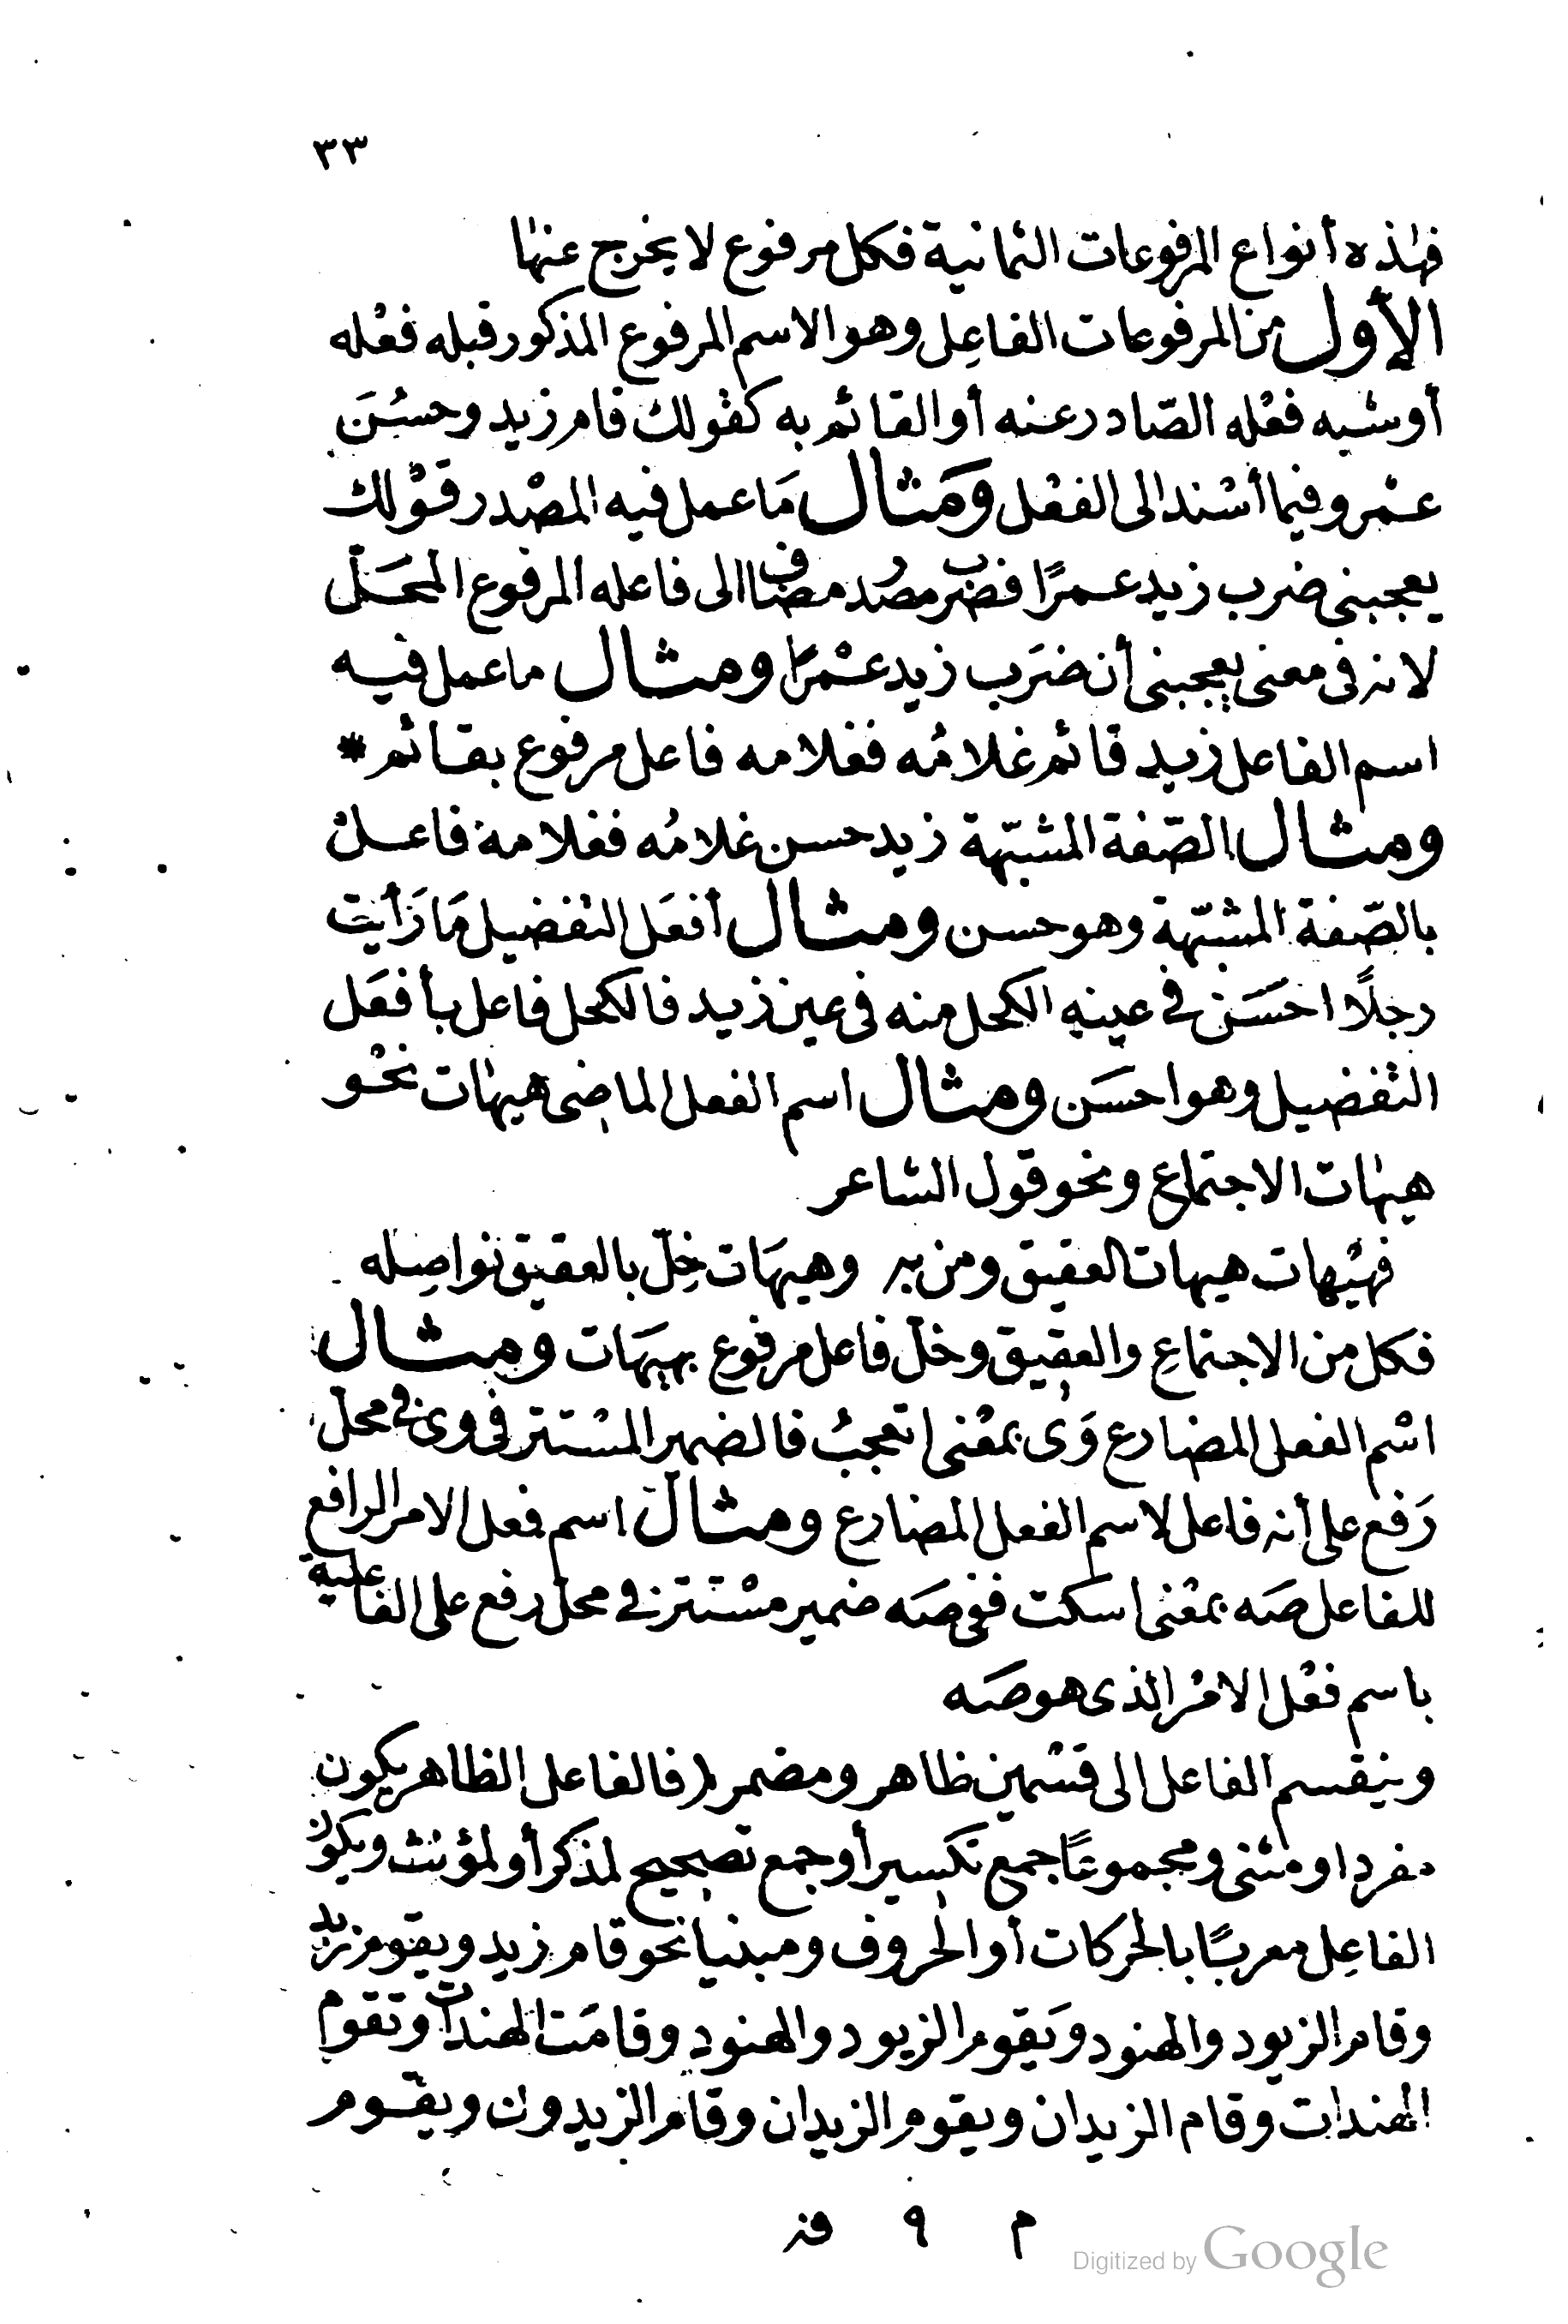 ٣٣
فهٰذه أنواع المرفوعات الثمانية فكل مرفوع لا يخرج عنهٰا
الأول من المرفوعات الفاعِل وهو الاسم المرفوع المذكور قبله فعْله
أو شبه فعْله الصّادر عنه أو القائم به كقولك قام زيد وحسُنَ
عمْرو فيما أسْند الى الفعْل ومَثال مَا عمل فيه المصْدر قوْلك
يعجبنى ضرب زيد عمرًا فضرب مصْدر مضاف الى فاعله المرفوع المحَلّ
لانه فى معنى يعجبنى أن ضرَب زيد عمْرًا ومثال ما عمل فيه
اسم الفاعل زيد قائم غلامُه فغلامه فاعل مرفوع بقائم *
ومثال الصّفة المشبّهة زيد حسن غلامُه فغلامه فاعل
بالصّفة المشبّهة وهو حسن ومثال أفعَل التفضيل مَا رَأيت
رجلًا احسَن في عينه الكحل منه فى عين زيد فالكحل فاعل بأفعَل
التفضيل وهو احسَن ومثال اسم الفعل الماضى هيهٰات نحْو
هيهٰات الاجتماع ونحو قول الشاعر
فهيْهات هيهات العقيق ومن به وهيهَات خِلّ بالعقيق نواصِله
فكل من الاجتماع والعقيق وخلّ فاعل مرفوع بهيهَات ومثال
اسْم الفعل المضارع وَى بمعْنى اتعجبُ فالضمير المسْتتر فى وى في محلّ
رَفع على أنه فاعل لاسم الفعل المضارع ومثال اسم فعل الامر الرافع
للفاعل صَه بمعْنى اسكت ففى صَه ضمير مسْتتر في محلّ رفع على الفاعلية
باسم فعْل الامْر الذى هو صَه
وينقسم الفاعل الى قسْمين ظاهر ومضمر فالفاعل الظاهر يكون
مفردا ومثنى ومجموعًا جمع تكسير أو جمع تصحيح لمذكر أو لمؤنث ويكون
الفاعِل معربًا بالحركات أو الحروف ومبنيا نحو قام زيد ويقوم زيد
وقام الزيود والهنود وَيقوم الزيود والهنود وقامَت الهندات وتقوم
الهندات وقام الزيدان ويقوم الزيدان وقام الزيدون ويقوم
م ٩
Digitized by Google